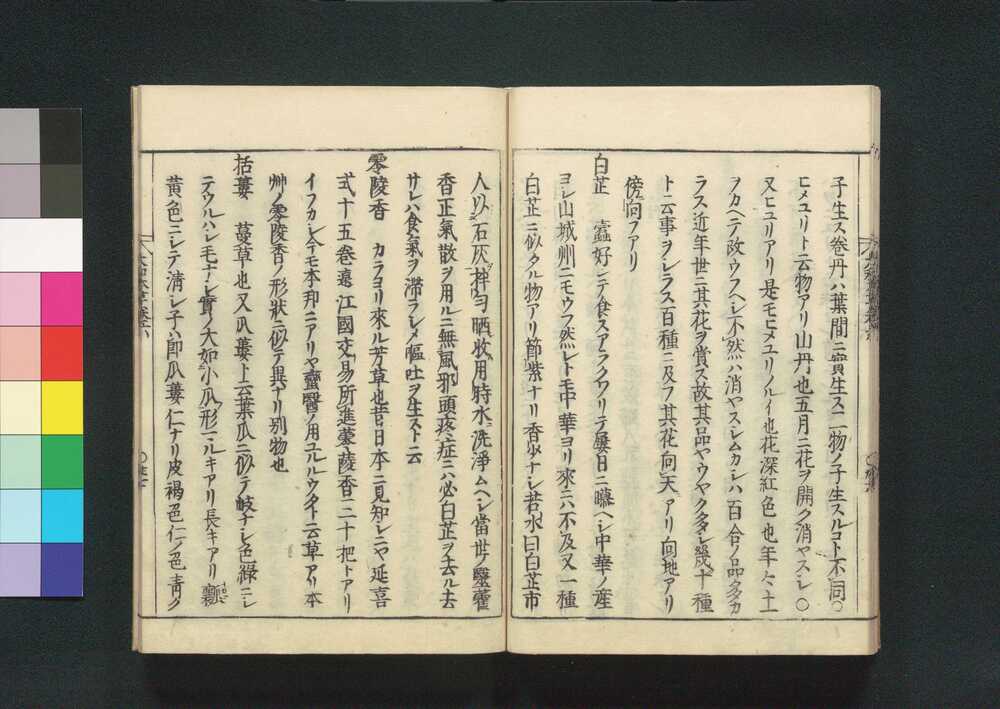 子生ス巻丹ハ葉間ニ實生ス二物ノ子生スルコト不同○
ヒメユリト云物アリ山丹也五月ニ花ヲ開ク消ヤスシ○
又ヒユリアリ是モヒメユリノルイ也花深紅色也年々土
ヲカヘテ改ウフヘシ不然ハ消ヤスシムカシハ百合ノ品多カ
ラス近年世ニ其花ヲ賞ス故其品ヤウヤク多シ幾十種
ト云事ヲシラス百種ニ及フ其花向天アリ向地アリ
傍向フアリ
白芷 蠧好ンテ食スアラクワリテ屢日ニ曝ヘシ中華ノ産
ヨシ山城州ニモウフ然レトモ中華ヨリ來ニハ不及又一種
白芷ニ似タル物アリ節紫ナリ香少ナシ若水曰白芷市
人以石灰拌匀晒收用時水洗淨ムヘシ當世ノ醫藿
香正氣散ヲ用ルニ無風邪頭疼症ニハ必白芷ヲ去ル去
サレハ食氣ヲ滞ラシメ嘔吐ヲ生スト云
零陵香 カラヨリ來ル芳草也昔日本ニ見知シニヤ延喜
式十五巻遠江國交易所進蕓薐香二十把トアリ
イフカシ今モ本邦ニアリヤ蠻醫ノ用ユルルウタト云草アリ本
艸ノ零陵香ノ形狀ニ似テ異ナリ別物也
括蔞 蔓草也又瓜蔞ト云葉瓜ニ似テ岐ナシ色緑ニシ
テウルハシ毛ナシ實ノ大如小瓜形マルキアリ長キアリ
黄色ニシテ淸シ子ハ即瓜蔞仁ナリ皮褐色仁ノ色青ク